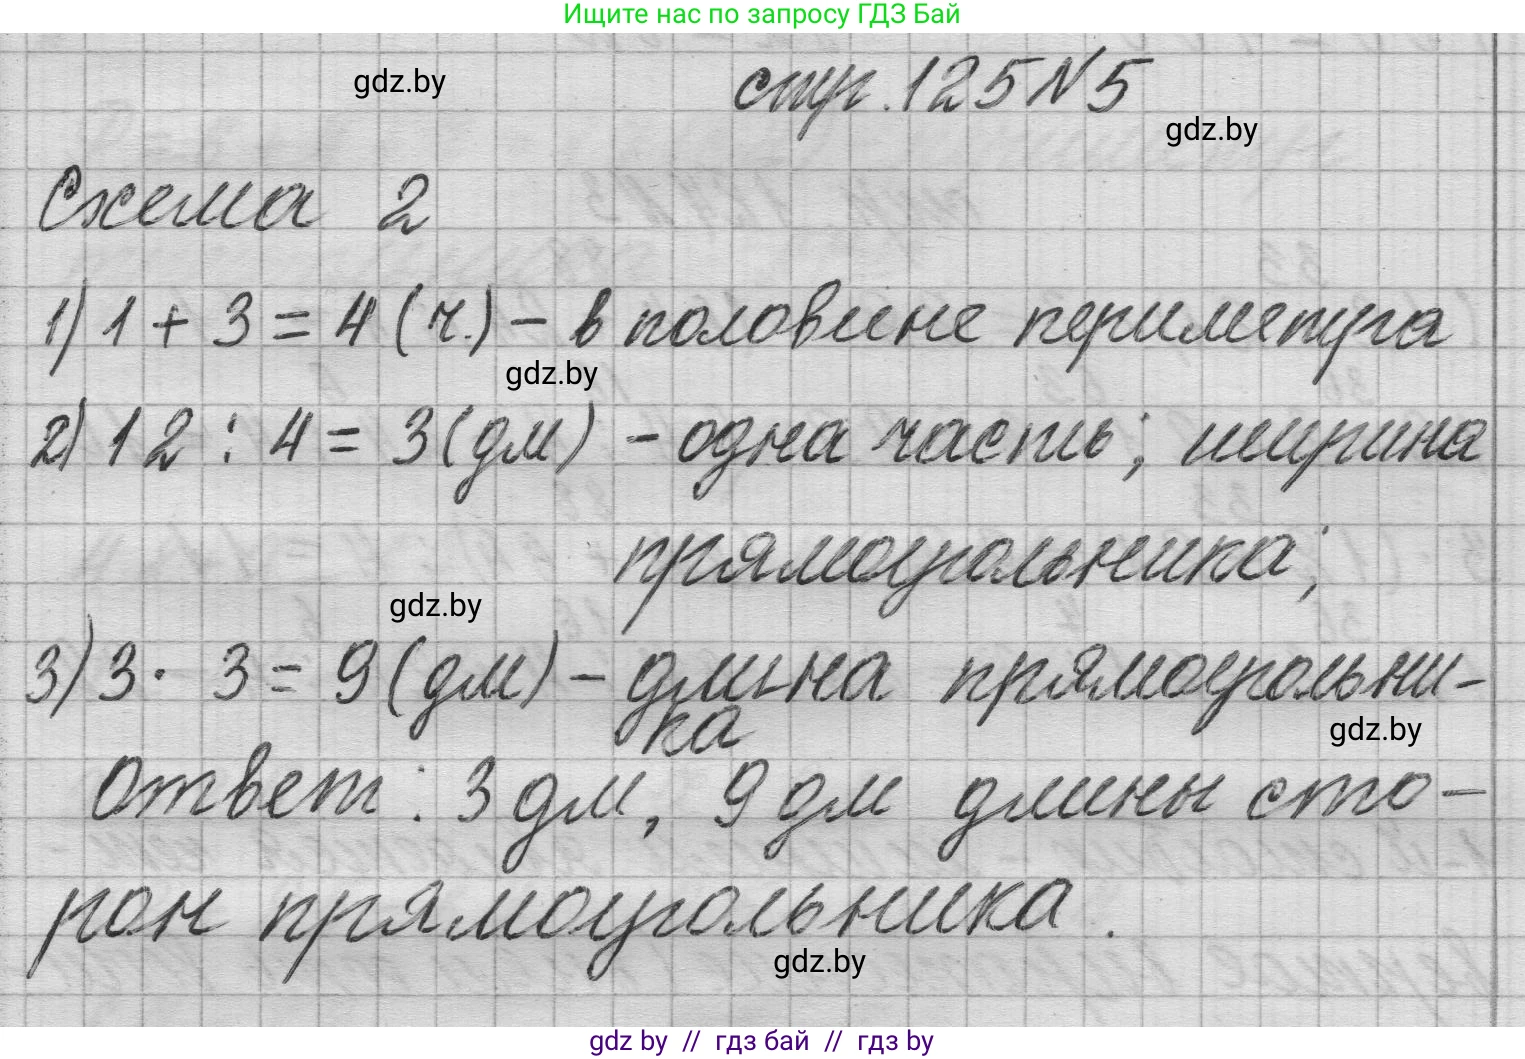 Ищите нас по запросу ГДЗ Бай
gdz.by
стр. 125 N 5
gdz.by
Схема 2
1) 1 + 3 = 4 (ч.) - в половине периметра
gdz.by
2) 12 : 4 = 3 (дм) - одна часть; ширина
прямоугольника;
gdz.by
3) 3 · 3 = 9 (дм) - длина прямоугольни-
ка
gdz.by
Ответ: 3 дм, 9 дм длины сто-
рон прямоугольника.
gdz.by
gdz by // гдз бай // гдз by